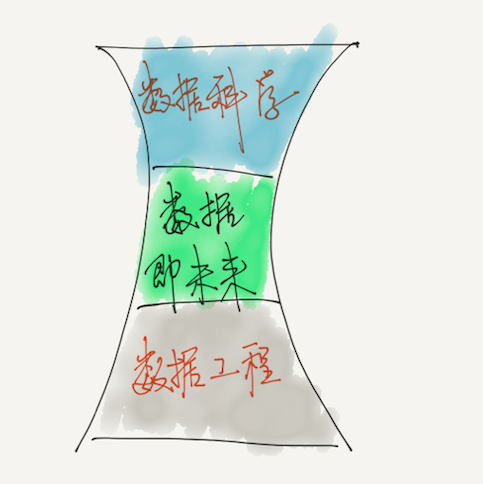 数据科学
数据
即未来
数据工程